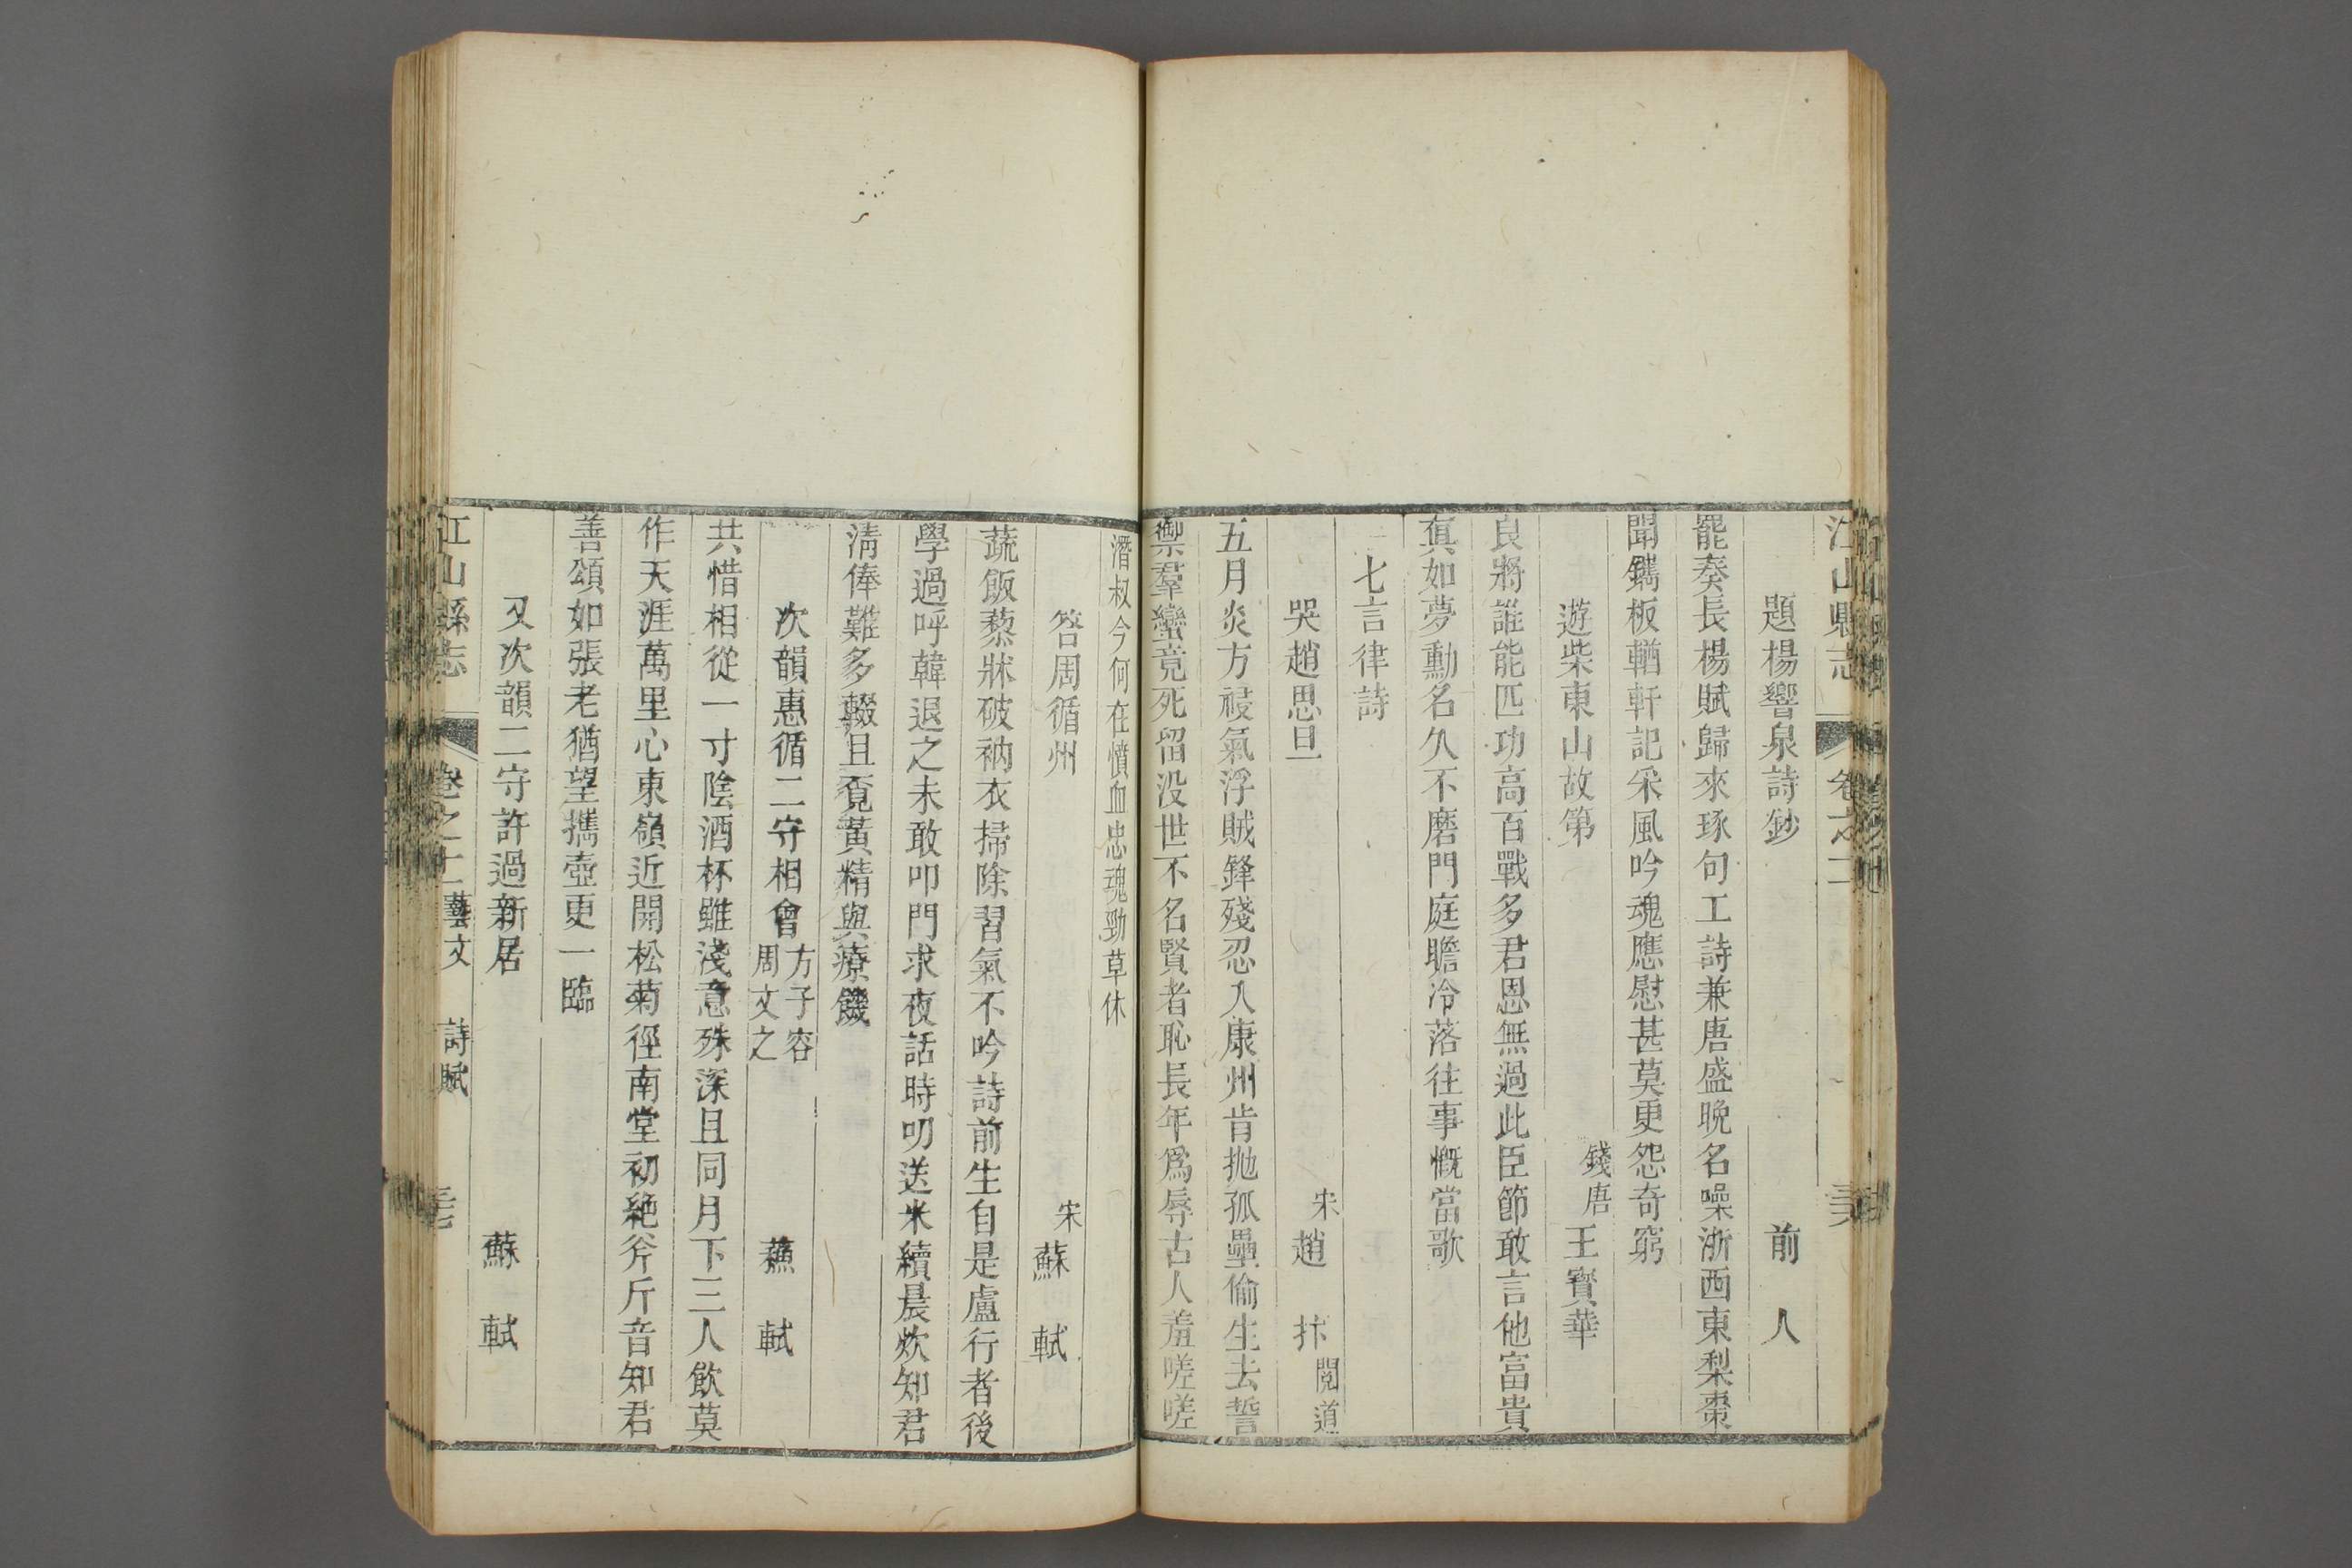 江山縣志 卷之十二
題楊響泉詩鈔 前人
罷奏長楊賦歸來琢句工詩兼唐盛晚名噪浙西東梨棗
聞鐫板輶軒記采風吟魂應慰甚莫更怨奇窮
遊柴東山故第 錢唐王寶華
良將誰能匹功高百戰多君恩無過此臣節敢言他富貴
眞如夢勳名久不磨門庭瞻冷落往事慨當歌
七言律詩
哭趙思旦 宋趙抃閱道
五月炎方祲氣浮賊鋒殘忍入康州肯拋孤壘偷生去誓
禦羣蠻竟死留没世不名賢者恥長年爲辱古人羞嗟嗟
潛叔今何在憤血忠魂勁草休
答周循州 宋蘇軾
蔬飯藜牀破衲衣掃除習氣不吟詩前生自是盧行者後
學過呼韓退之未敢叩門求夜話時叨送米續晨炊知君
清俸難多輟且覔黃精與療饑
次韻惠循二守相會 方子容 周文之 蘇軾
共惜相從一寸陰酒杯雖淺意殊深且同月下三人飲莫
作天涯萬里心東嶺近開松菊徑南堂初絶斧斤音知君
善頌如張老猶望攜壺更一臨
又次韻二守許過新居 蘇軾
江山縣志 卷之十二 藝文 詩賦